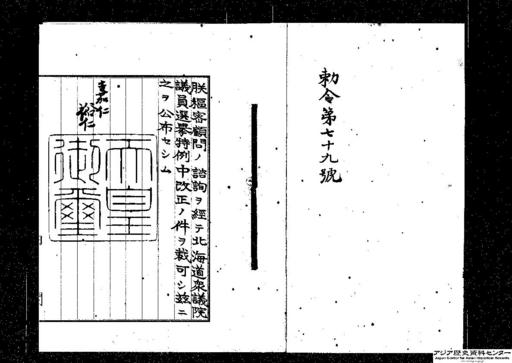 勅令第七十九號
朕樞密顧問ノ諮詢ヲ経テ北海道衆議院
議員選擧特例中改正ノ件ヲ裁可シ玆ニ
之ヲ公布セシム
嘉仁
裕仁
天皇
御璽
アジア歴史資料センター
Japan Center for Asian Historical Records